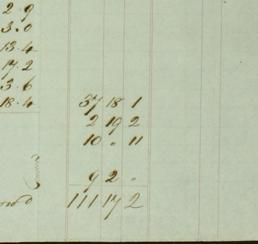 2.9
3.0
13.4
17.2
3.6
18.4 57 18 1
2 19 2
10 " 11
9 2 "
111 17 2